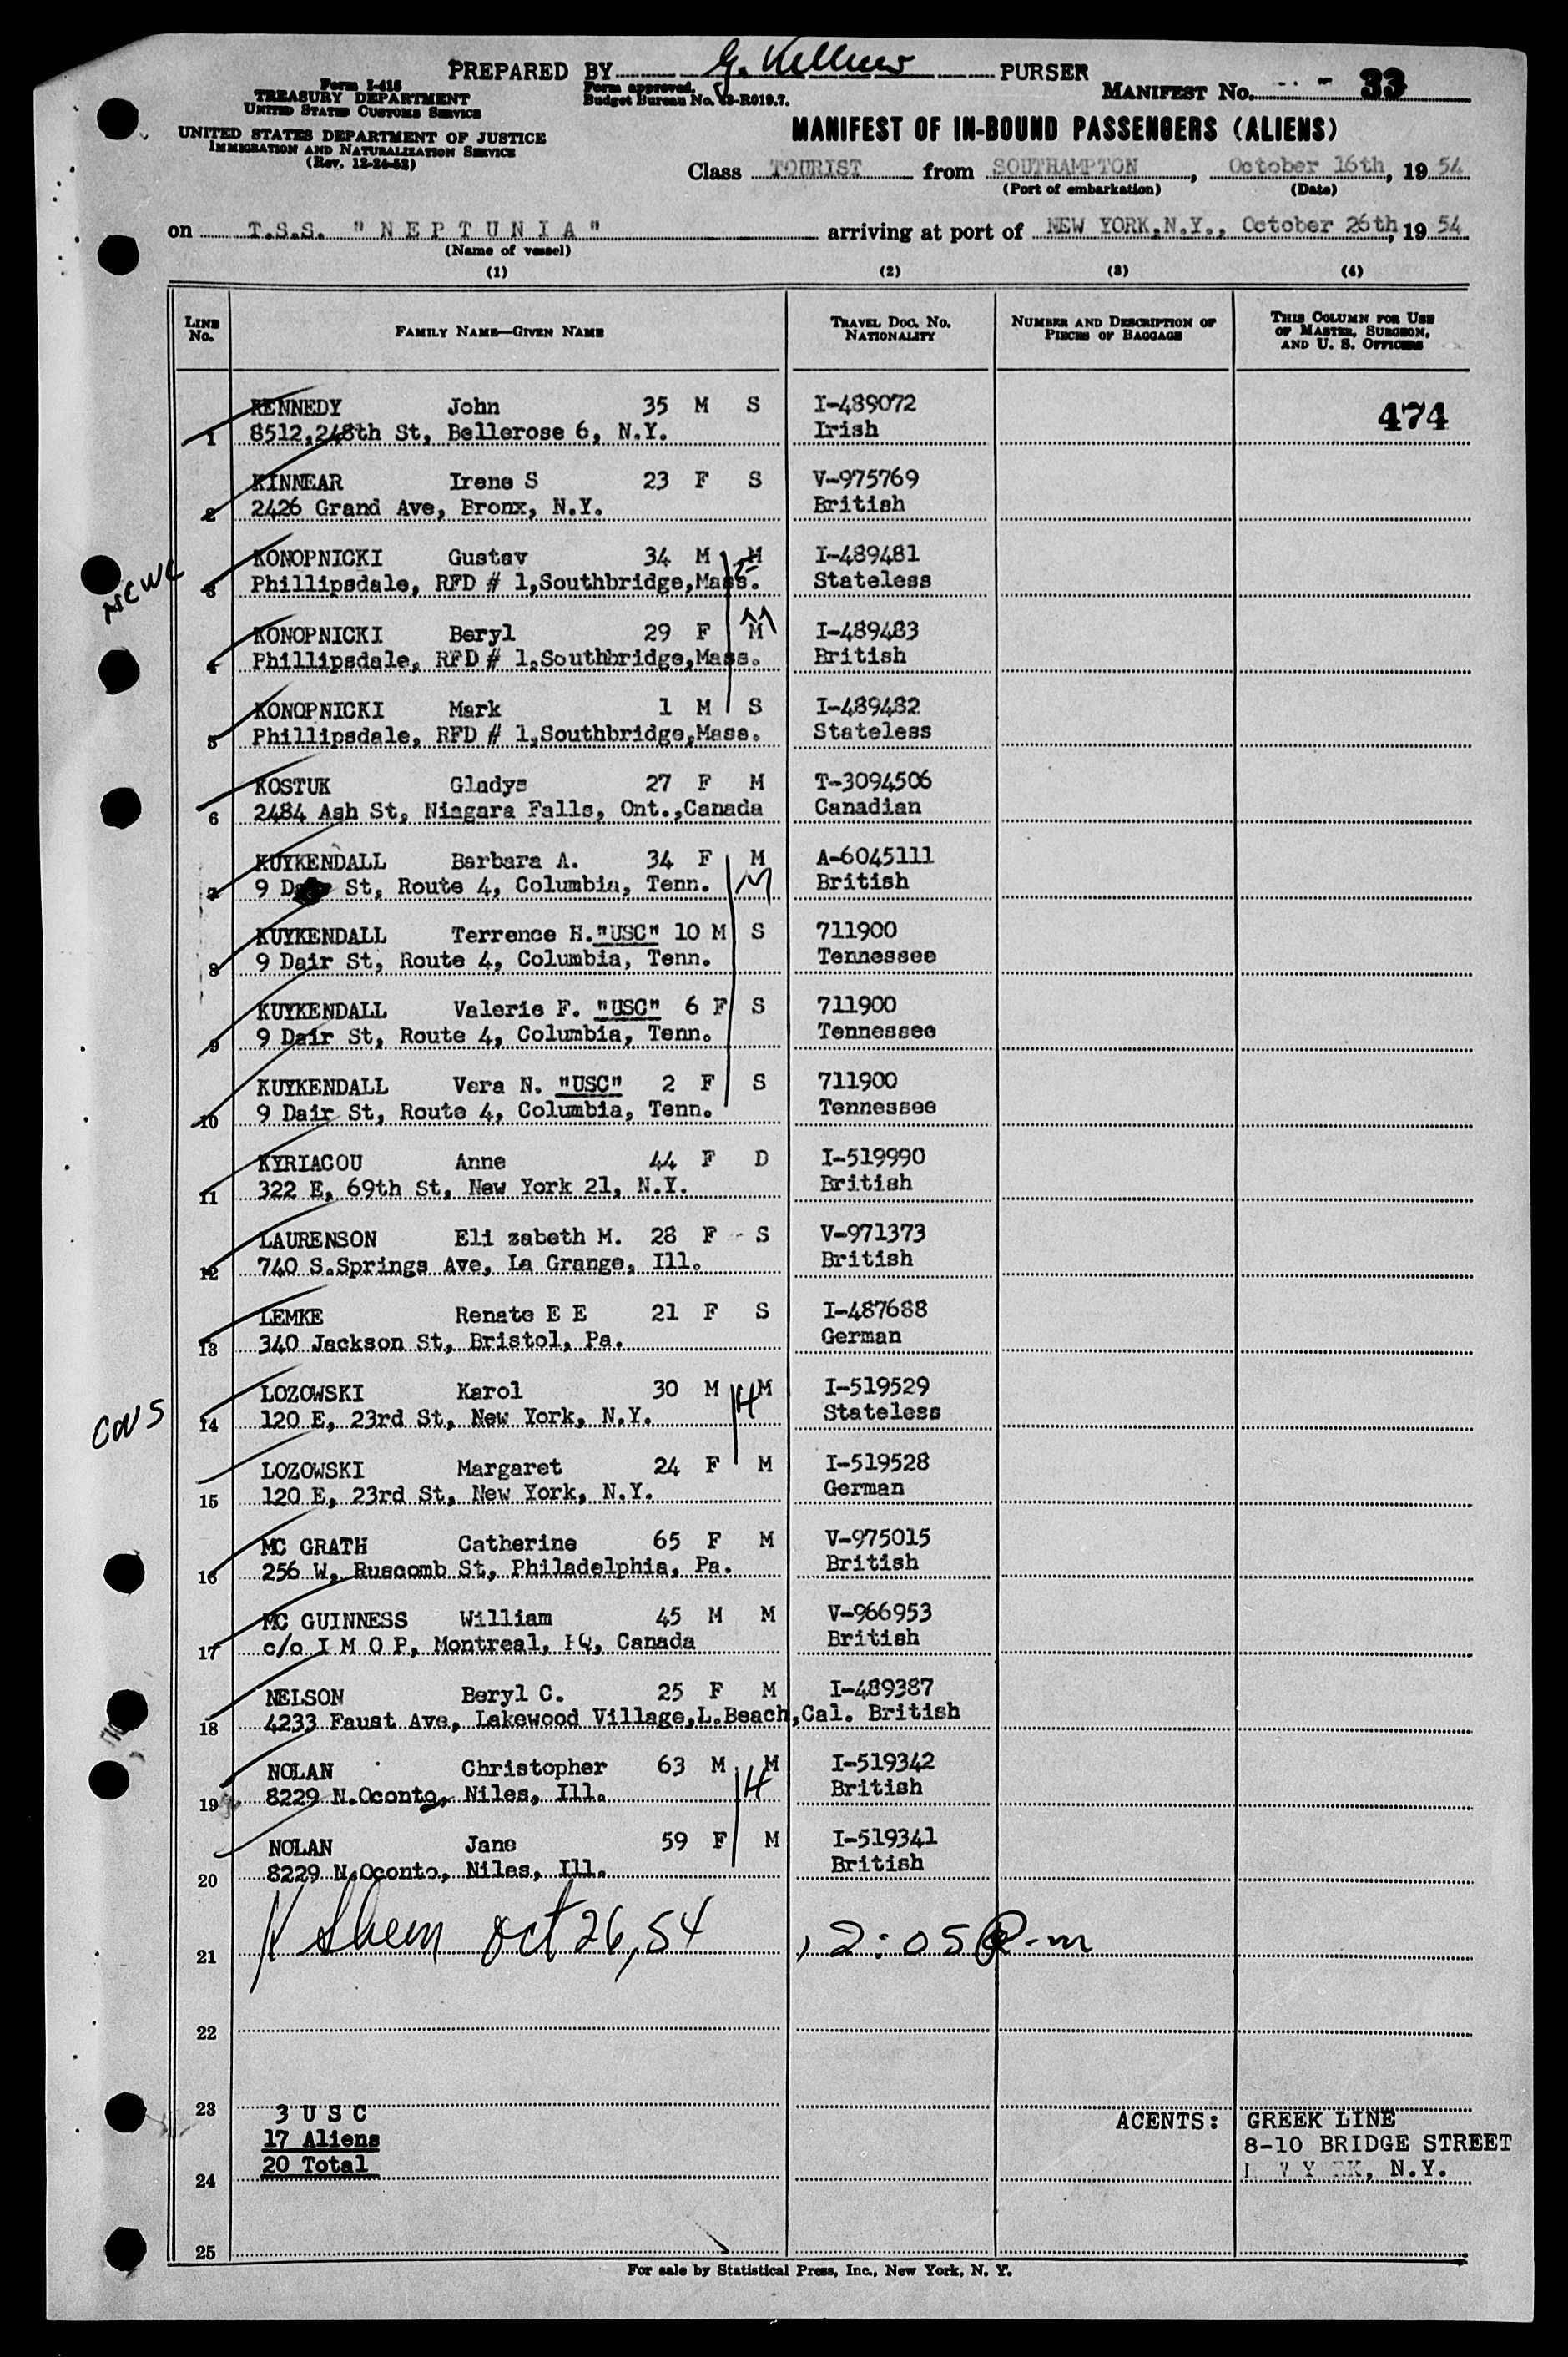 PREPARED BY G. Kellner PURSER
Form I-415
TREASURY DEPARTMENT
UNITED STATES CUSTOMS SERVICE
UNITED STATES DEPARTMENT OF JUSTICE
IMMIGRATION AND NATURALIZATION SERVICE
(Rev. 12-24-52)
Form approved.
Budget Bureau No. 43-R019.7.
MANIFEST No. 33
MANIFEST OF IN-BOUND PASSENGERS (ALIENS)
Class TOURIST from SOUTHAMPTON, October 16th, 19 54
(Port of embarkation) (Date)
on T.S.S. "NEPTUNIA" arriving at port of NEW YORK, N.Y., October 26th, 19 54
(Name of vessel)
(1) (2) (3) (4)
LINE No. FAMILY NAME—GIVEN NAME TRAVEL DOC. No. NATIONALITY NUMBER AND DESCRIPTION OF PIECES OF BAGGAGE THIS COLUMN FOR USE OF MASTER, SURGEON, AND U. S. OFFICERS
KENNEDY John 35 M S I-489072 474
1 8512,248th St, Bellerose 6, N.Y. Irish
KINNEAR Irene S 23 F S V-975769
2 2426 Grand Ave, Bronx, N.Y. British
KONOPNICKI Gustav 34 M M I-489481
3 Phillipsdale, RFD # 1,Southbridge,Mass. Stateless
KONOPNICKI Beryl 29 F M M I-489483
4 Phillipsdale, RFD # 1,Southbridge,Mass. British
KONOPNICKI Mark 1 M S I-489482
5 Phillipsdale, RFD # 1,Southbridge,Mass. Stateless
KOSTUK Gladys 27 F M T-3094506
6 2484 Ash St, Niagara Falls, Ont.,Canada Canadian
KUYKENDALL Barbara A. 34 F M A-6045111
7 9 St, Route 4, Columbia, Tenn. M British
KUYKENDALL Terrence H."USC" 10 M S 711900
8 9 Dair St, Route 4, Columbia, Tenn. Tennessee
KUYKENDALL Valerie F. "USC" 6 F S 711900
9 9 Dair St, Route 4, Columbia, Tenn. Tennessee
KUYKENDALL Vera N. "USC" 2 F S 711900
10 9 Dair St, Route 4, Columbia, Tenn. Tennessee
KYRIACOU Anne 44 F D I-519990
11 322 E, 69th St, New York 21, N.Y. British
LAURENSON Eli zabeth M. 28 F S V-971373
12 740 S.Springs Ave, La Grange, Ill. British
LEMKE Renate E E 21 F S I-487688
13 340 Jackson St, Bristol, Pa. German
LOZOWSKI Karol 30 M M I-519529
14 120 E, 23rd St, New York, N.Y. H Stateless
LOZOWSKI Margaret 24 F M I-519528
15 120 E, 23rd St, New York, N.Y. German
MC GRATH Catherine 65 F M V-975015
16 256 W. Ruscomb St, Philadelphia, Pa. British
MC GUINNESS William 45 M M V-966953
17 c/o I M O P, Montreal, PQ, Canada British
NELSON Beryl C. 25 F M I-489387
18 4233 Faust Ave, Lakewood Village,L.Beach,Cal. British
NOLAN Christopher 63 M M I-519342
19 8229 N.Oconto, Niles, Ill. H British
NOLAN Jane 59 F M I-519341
20 8229 N.Oconto, Niles, Ill. British
21 Oct 26, 54 12:05 P.m
22
23 3 U S C AGENTS: GREEK LINE
17 Aliens 8-10 BRIDGE STREET
20 Total N.Y.
24
25
For sale by Statistical Press, Inc., New York, N. Y.